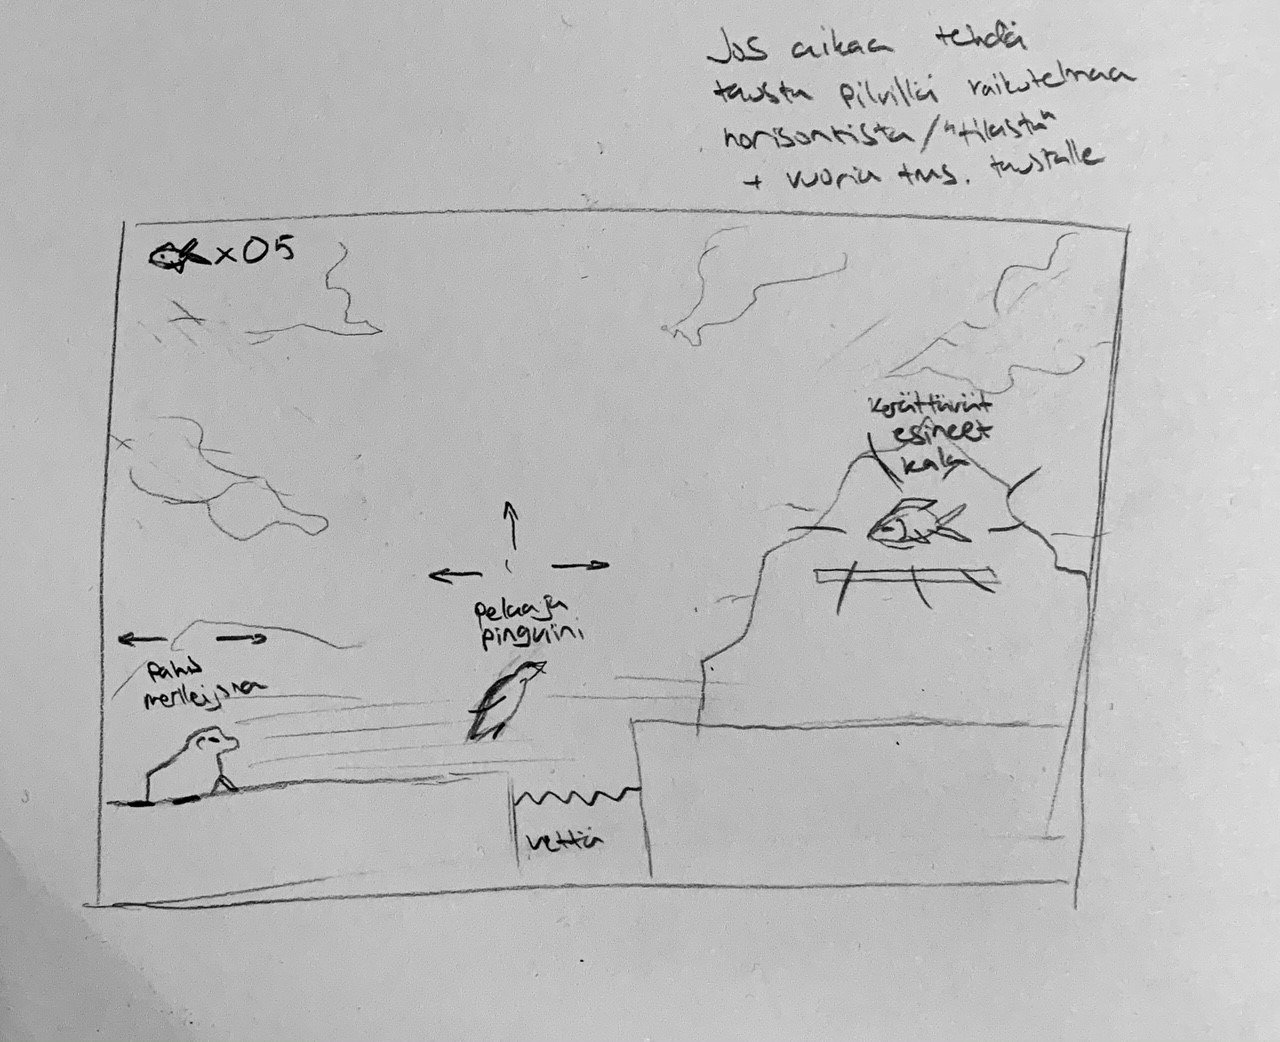 Jos aikaa tehdä
tausta pilvillä vaikutelmaa
horisontista/"tilasta"
+ vuoria tms. taustalle
x05
kerättävät
esineet
kala
pelaaja
pinguini
paha
merileijona
vettä